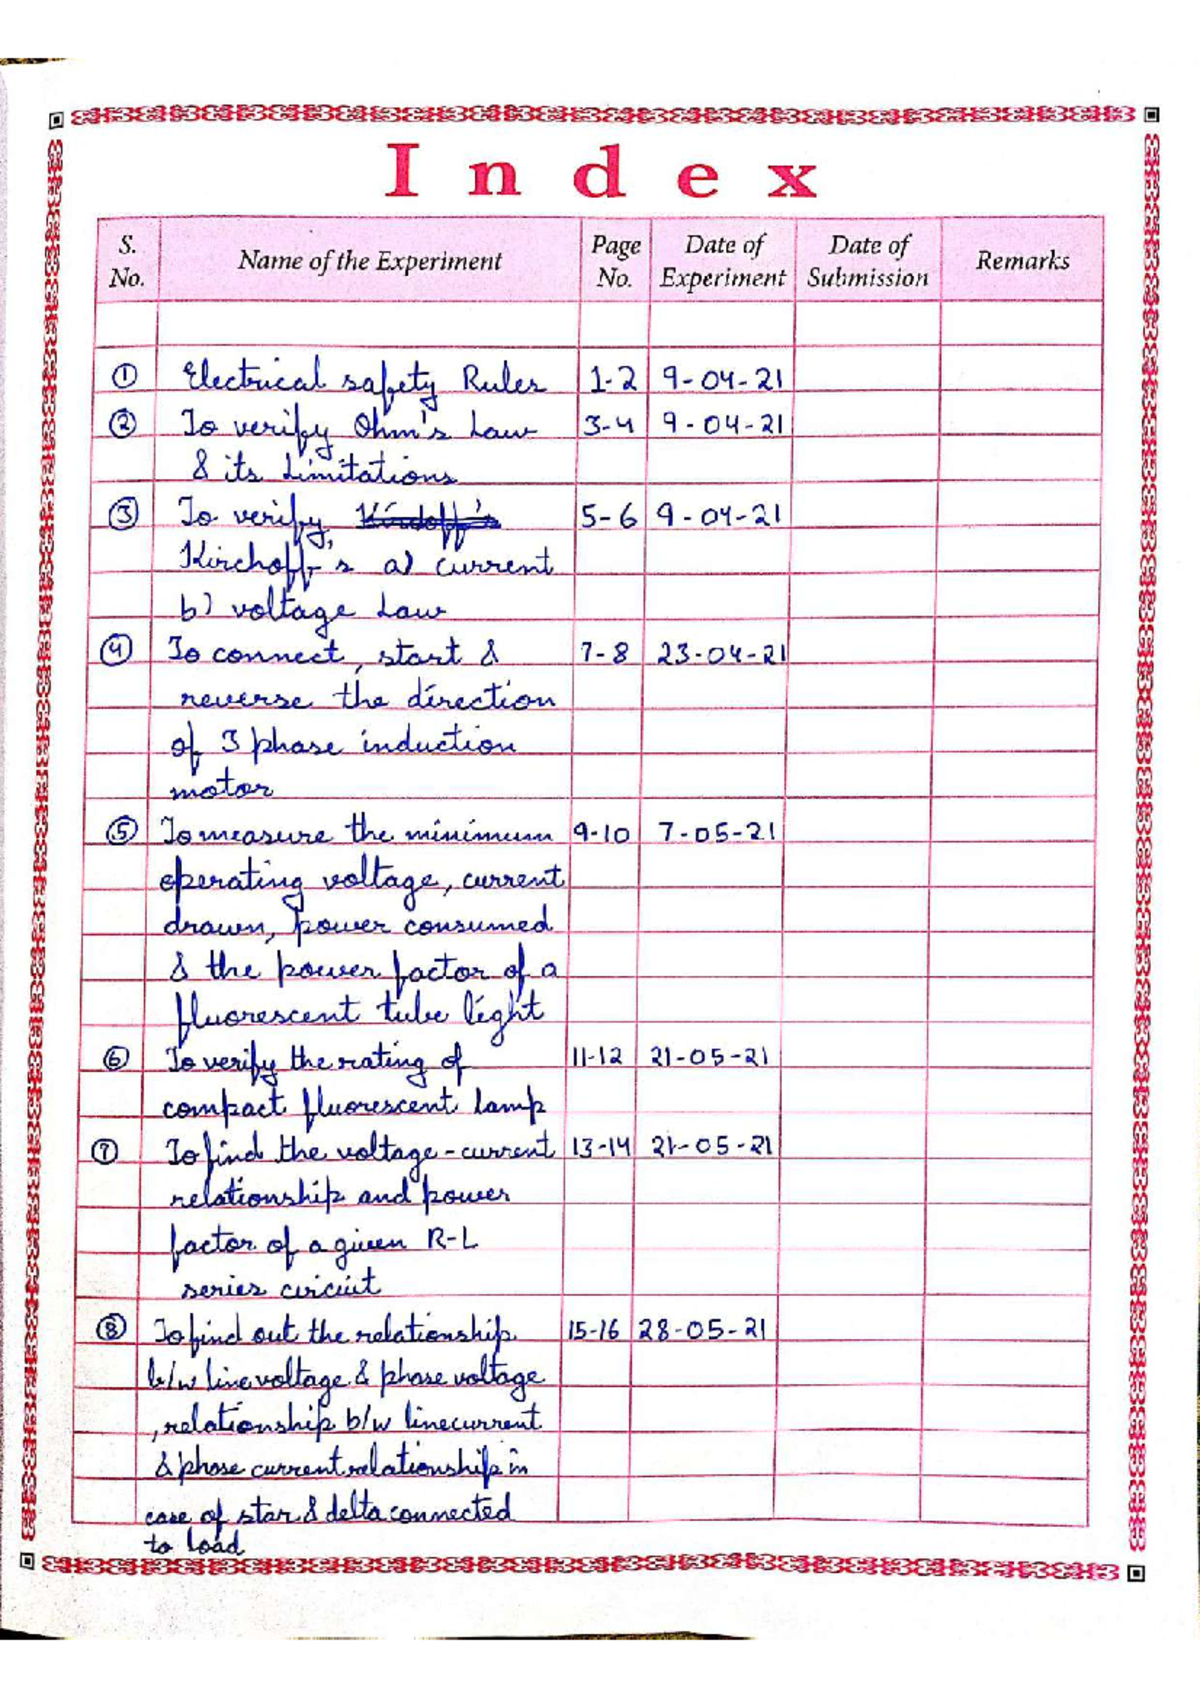 Index
S. No. Name of the Experiment Page No. Date of Experiment Date of Submission Remarks
① Electrical safety Rules 1-2 9-04-21
② To verify Ohm's Law 3-4 9-04-21
& its Limitations
③ To verify 5-6 9-04-21
Kirchoff's a) current
b) voltage Law
④ To connect, start & 7-8 23-04-21
reverse the direction
of 3 phase induction
motor
⑤ To measure the minimum 9-10 7-05-21
operating voltage, current
drawn, power consumed
& the power factor of a
fluorescent tube light
⑥ To verify the rating of 11-12 21-05-21
compact fluorescent lamp
⑦ To find the voltage-current 13-14 21-05-21
relationship and power
factor of a given R-L
series circuit
⑧ To find out the relationship 15-16 28-05-21
b/w line voltage & phase voltage
, relationship b/w line current
& phase current relationship in
case of star & delta connected
to load